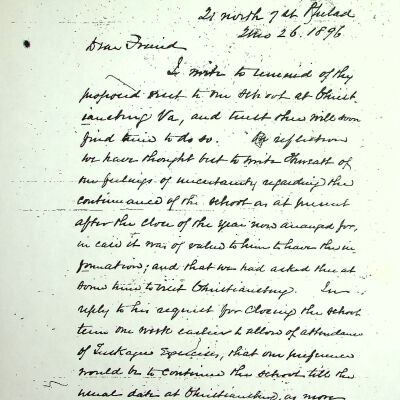 21 north 7 st Philad
2 mo 26. 1896
Dear Friend
I write to remind of thy
proposed visit to our school at Christ
iansburg Va, and trust thee will soon
find time to do so. On reflection
we have thought best to write Thrash of
our feelings of uncertainty regarding the
continuance of the school as at present
after the close of the year now arranged for,
in case it was of value to him to have the in
formation; and that we had asked thee at
some time to visit Christiansburg. In
reply to his request for closing the school
term one week earlier to allow of attendance
of Tuskagee Exercises, that our preference
would be to continue the school till the
usual date at Christiansburg, as more